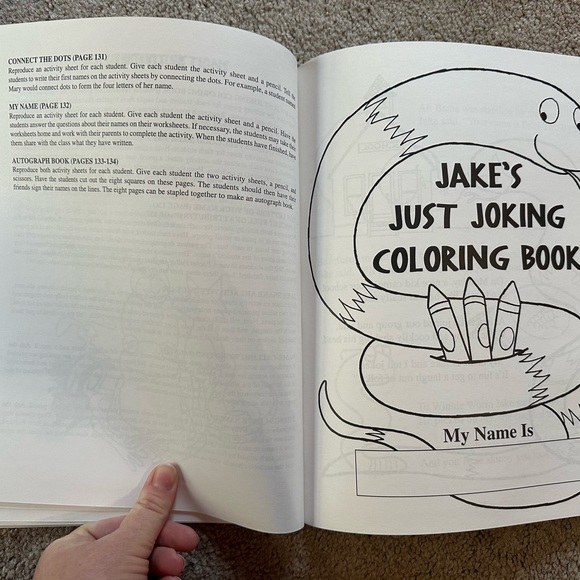 CONNECT THE DOTS (PAGE 131)
Reproduce an activity sheet for each student. Give each student the activity sheet and a pencil. Tell the
students to write their first names on the activity sheets by connecting the dots. For example, a student named
Mary would connect dots to form the four letters of her name.
MY NAME (PAGE 132)
Reproduce an activity sheet for each student. Give each student the activity sheet and a pencil. Have the
students answer the questions about their names on their worksheets. If necessary, the students may take their
worksheets home and work with their parents to complete the activity. When the students have finished, have
them share with the class what they have written.
AUTOGRAPH BOOK (PAGES 133-134)
Reproduce both activity sheets for each student. Give each student the two activity sheets, a pencil, and
scissors. Have the students cut out the eight squares on these pages. The students should then have their
friends sign their names on the lines. The eight pages can be stapled together to make an autograph book.
JAKE'S
JUST JOKING
COLORING BOOK
My Name Is